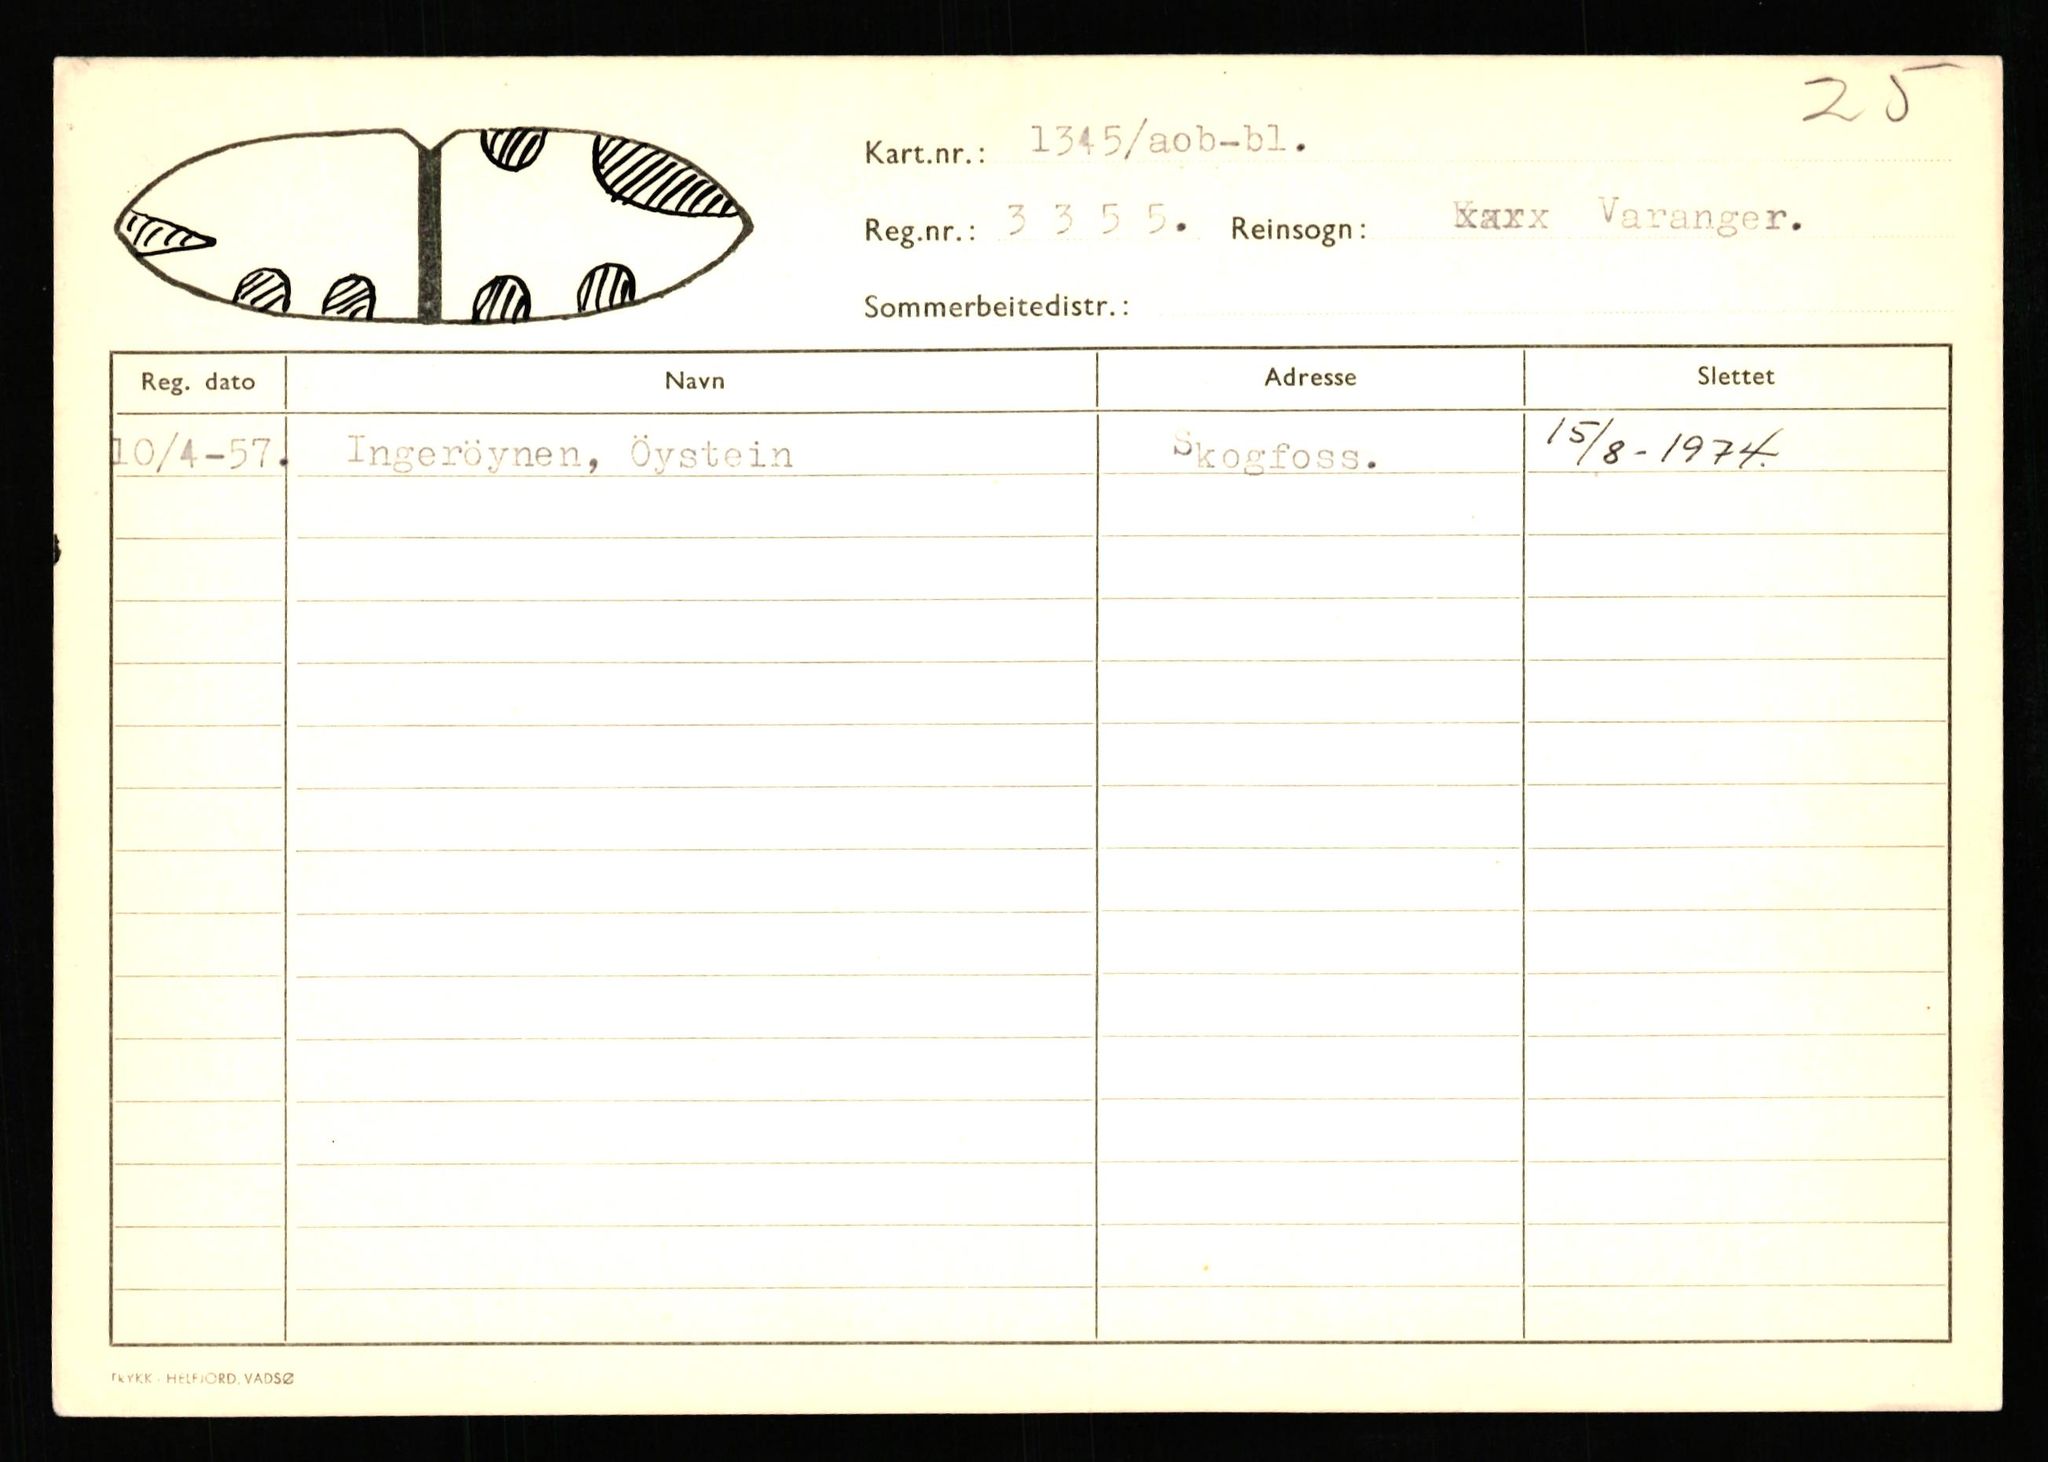 25
Kart.nr.: 1345/aob-bl.
Reg.nr.: 3 3 5 5. Reinsogn: Varanger.
Sommerbeitedistr.:
Reg. dato Navn Adresse Slettet
10/4-57. Ingeröynen, Öystein Skogfoss. 15/8-1974.
TRYKK - HELFJORD, VADSØ